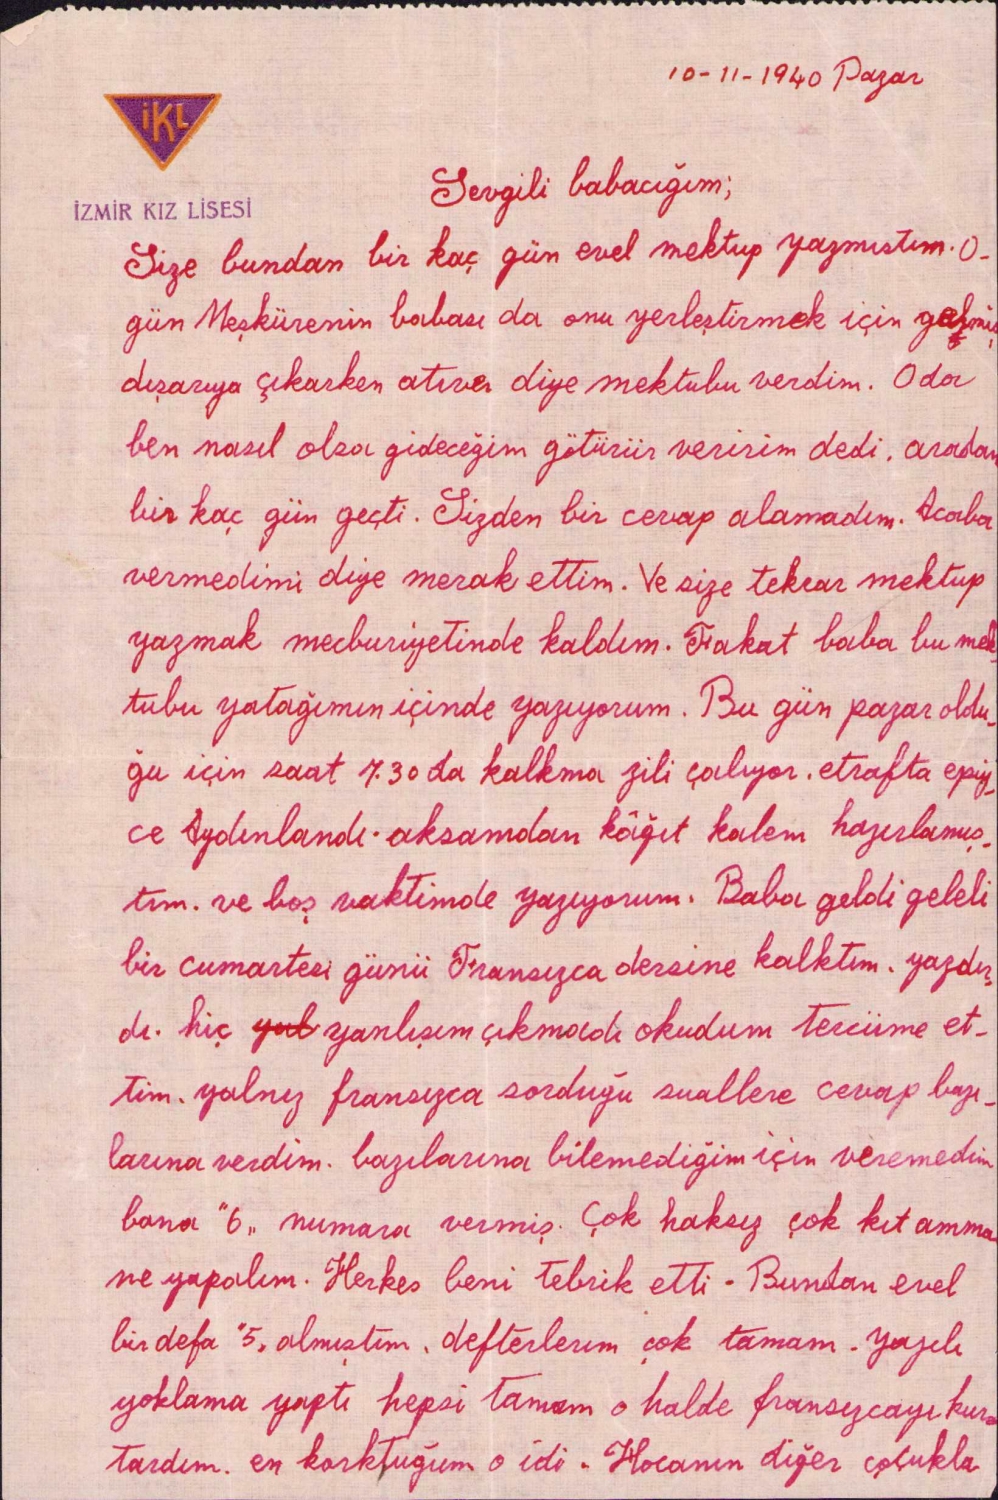 10-11-1940 Pazar
İKL
İZMİR KIZ LİSESİ
Sevgili babacığım;
Size bundan bir kaç gün evel mektup yazmıstım. O-
gün Meşkürenin babası da onu yerleştirmek için gelmiş
dışarıya çıkarken atıver diye mektubu verdim. O da
ben nasıl olsa gideceğim götürür veririm dedi. aradan
bir kaç gün geçti. Sizden bir cevap alamadım. Acaba
vermedimi diye merak ettim. Ve size tekrar mektup
yazmak mecburiyetinde kaldım. Fakat baba bu mek
tubu yatağımın içinde yazıyorum. Bu gün pazar oldu-
ğu için saat 7.30 da kalkma zili çalıyor. etrafta epiy-
ce Aydınlandı. aksamdan kâğıt kalem hazırlamış-
tım. ve boş vaktimde yazıyorum. Baba geldi geleli
bir cumartesi günü Fransızca dersine kalktım. yazdır
dı. hiç yal yanlışım çıkmadı okudum tercüme et-
tim. yalnız fransızca sorduğu suallere cevap bazı-
larına verdim. bazılarına bilemediğim için veremedim
bana "6" numara vermiş. Çok haksız çok kıt amma
ne yapalım. Herkes beni tebrik etti - Bundan evel
bir defa "5" almıştım. defterlerim çok tamam. yazılı
yoklama yaptı hepsi tamam o halde fransızcayı kur
tardım. en korktuğum o idi. Hocanın diğer çocukla